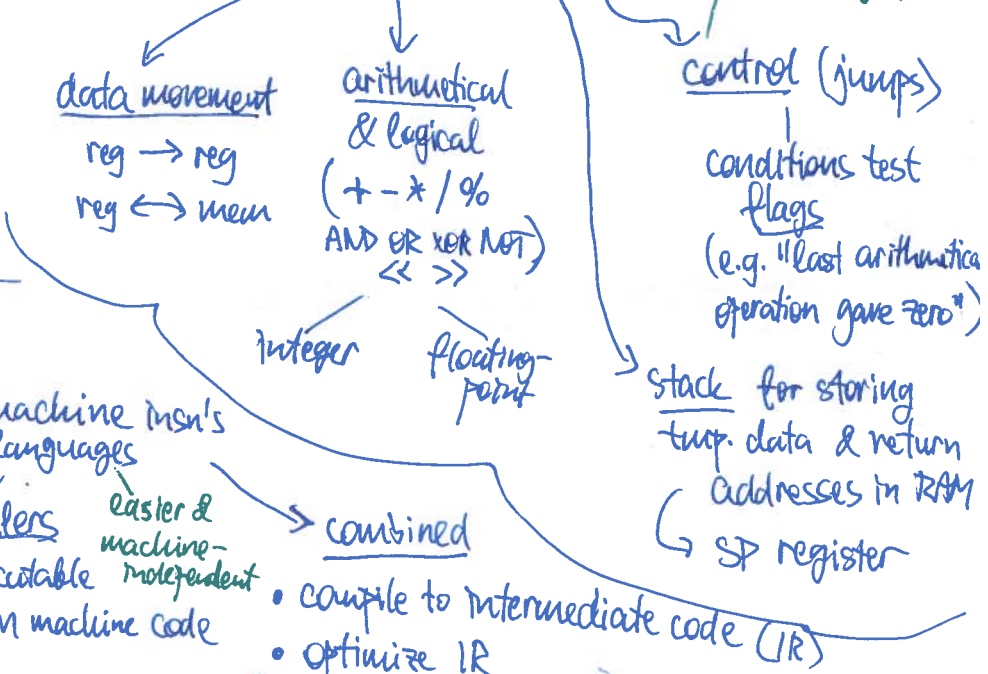 data movement
reg → reg
reg ↔ mem
arithmetical
& logical
(+ - * / %
AND OR XOR NOT)
<< >>
integer
floating-
point
control (jumps)
conditions test
flags
(e.g. "last arithmetica
operation gave zero")
stack for storing
tmp. data & return
addresses in RAM
SP register
machine insn's
languages
lers
easier &
machine-
independent
cutable
machine code
combined
• compile to intermediate code (IR)
• optimize IR